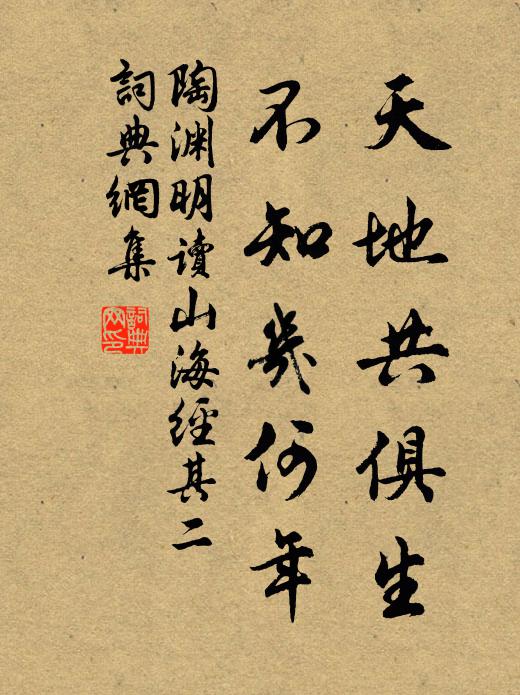 天地共俱生
不知幾何年
陶渊明讀山海經其二
詞典網集
詞典網印